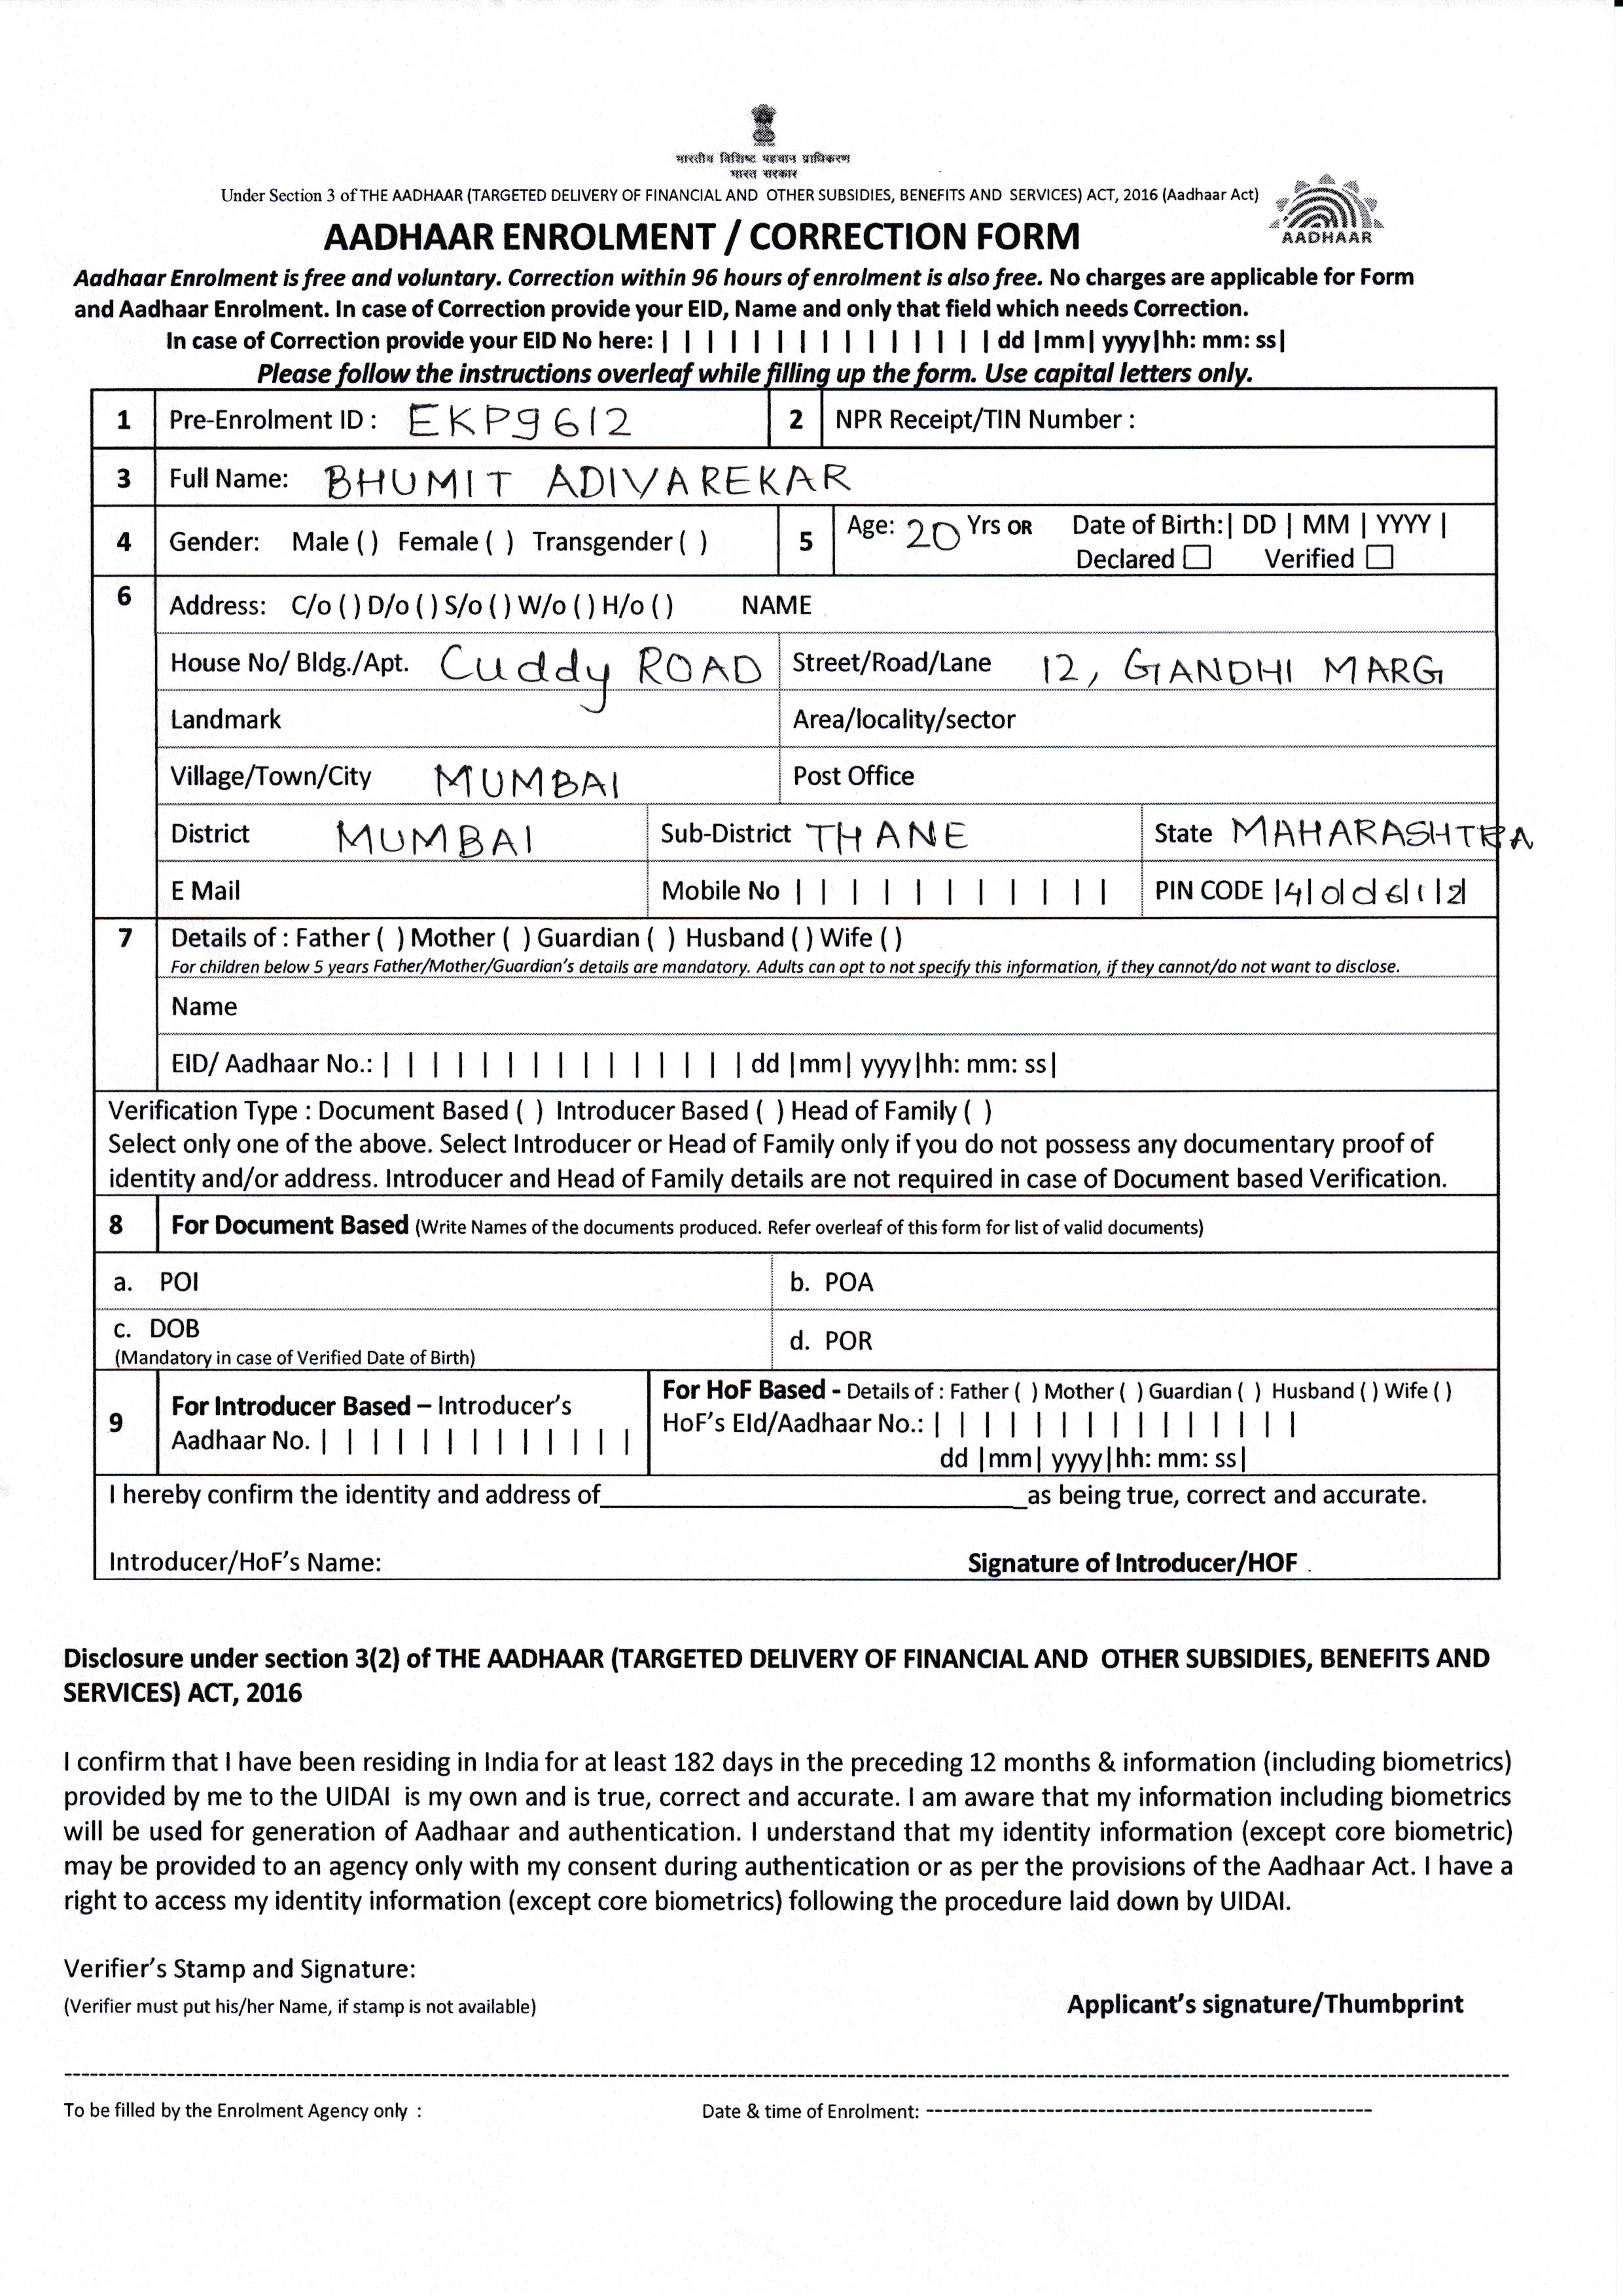 भारतीय विशिष्ट पहचान प्राधिकरण
भारत सरकार
Under Section 3 of THE AADHAAR (TARGETED DELIVERY OF FINANCIAL AND OTHER SUBSIDIES, BENEFITS AND SERVICES) ACT, 2016 (Aadhaar Act)
AADHAAR
AADHAAR ENROLMENT / CORRECTION FORM
Aadhaar Enrolment is free and voluntary. Correction within 96 hours of enrolment is also free. No charges are applicable for Form
and Aadhaar Enrolment. In case of Correction provide your EID, Name and only that field which needs Correction.
In case of Correction provide your EID No here: | | | | | | | | | | | | | | | dd |mm| yyyy|hh: mm: ss|
Please follow the instructions overleaf while filling up the form. Use capital letters only.
1 Pre-Enrolment ID : EKP9612 2 NPR Receipt/TIN Number :
3 Full Name: BHUMIT ADIVAREKAR
4 Gender: Male ( ) Female ( ) Transgender ( ) 5 Age: 20 Yrs OR Date of Birth:| DD | MM | YYYY |
Declared Verified
6 Address: C/o ( ) D/o ( ) S/o ( ) W/o ( ) H/o ( ) NAME
House No/ Bldg./Apt. Cuddy ROAD Street/Road/Lane 12, GANDHI MARG
Landmark Area/locality/sector
Village/Town/City MUMBAI Post Office
District MUMBAI Sub-District THANE State MAHARASHTRA
E Mail Mobile No | | | | | | | | | | | PIN CODE |4|0|0|6|1|2|
7 Details of : Father ( ) Mother ( ) Guardian ( ) Husband ( ) Wife ( )
For children below 5 years Father/Mother/Guardian's details are mandatory. Adults can opt to not specify this information, if they cannot/do not want to disclose.
Name
EID/ Aadhaar No.: | | | | | | | | | | | | | | | dd |mm| yyyy|hh: mm: ss|
Verification Type : Document Based ( ) Introducer Based ( ) Head of Family ( )
Select only one of the above. Select Introducer or Head of Family only if you do not possess any documentary proof of
identity and/or address. Introducer and Head of Family details are not required in case of Document based Verification.
8 For Document Based (Write Names of the documents produced. Refer overleaf of this form for list of valid documents)
a. POI b. POA
c. DOB d. POR
(Mandatory in case of Verified Date of Birth)
9 For Introducer Based – Introducer's
Aadhaar No. | | | | | | | | | | | | |
For HoF Based - Details of : Father ( ) Mother ( ) Guardian ( ) Husband ( ) Wife ( )
HoF's EId/Aadhaar No.: | | | | | | | | | | | | | | |
dd |mm| yyyy|hh: mm: ss|
I hereby confirm the identity and address of_____________________________as being true, correct and accurate.
Introducer/HoF's Name: Signature of Introducer/HOF
Disclosure under section 3(2) of THE AADHAAR (TARGETED DELIVERY OF FINANCIAL AND OTHER SUBSIDIES, BENEFITS AND
SERVICES) ACT, 2016
I confirm that I have been residing in India for at least 182 days in the preceding 12 months & information (including biometrics)
provided by me to the UIDAI is my own and is true, correct and accurate. I am aware that my information including biometrics
will be used for generation of Aadhaar and authentication. I understand that my identity information (except core biometric)
may be provided to an agency only with my consent during authentication or as per the provisions of the Aadhaar Act. I have a
right to access my identity information (except core biometrics) following the procedure laid down by UIDAI.
Verifier's Stamp and Signature:
(Verifier must put his/her Name, if stamp is not available) Applicant's signature/Thumbprint
To be filled by the Enrolment Agency only : Date & time of Enrolment: --------------------------------------------------